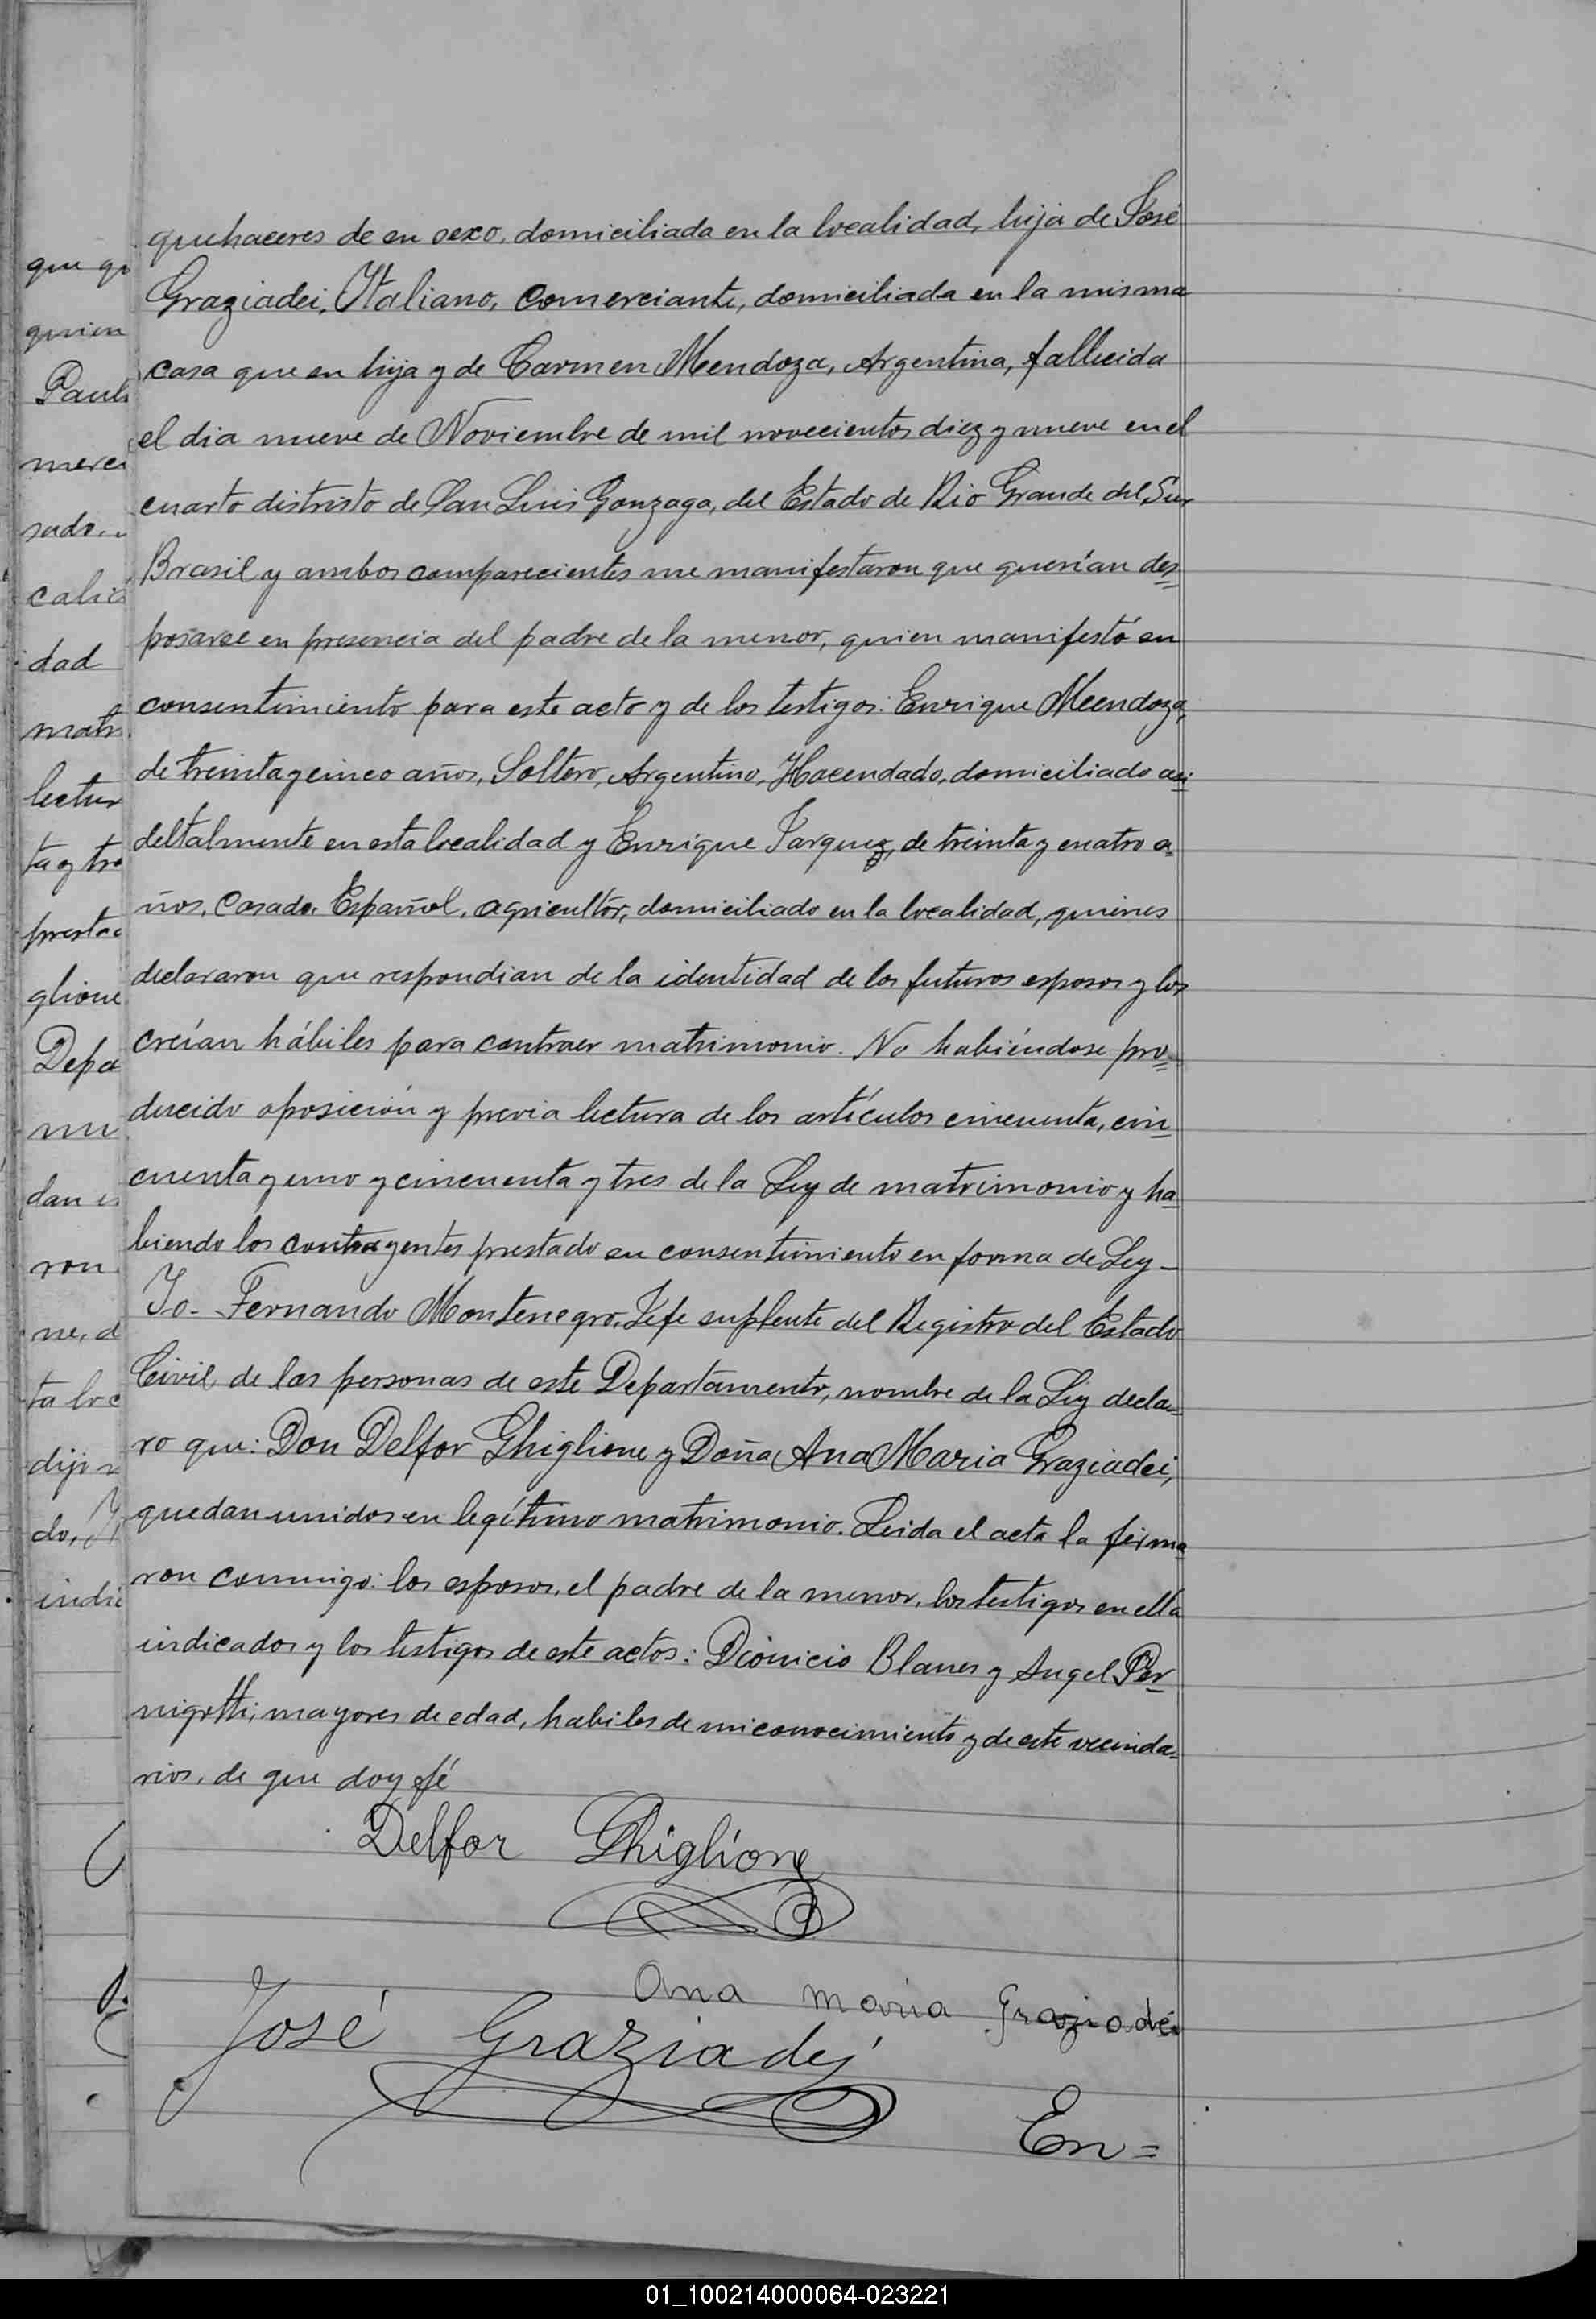 quehaceres de su sexo, domiciliada en la localidad, hija de José
Graziadei, Italiano, Comerciante, domiciliada en la misma
casa que su hija y de Carmen Mendoza, Argentina, fallecida
el dia nueve de Noviembre de mil novecientos diez y nueve en el
cuarto distristo de San Luis Gonzaga, del Estado de Rio Grande del Sur
Brasil y ambos comparecientes me manifestaron que querían des=
posarse en presencia del padre de la menor, quien manifestó su
consentimiento para este acto y de los testigos: Enrique Meendoza,
de treinta y cinco años, Soltero, Argentino, Hacendado, domiciliado aci=
deltalmente en esta localidad y Enrique Tarquez, de treinta y cuatro a=
ños, Casado, Español, agricultor, domiciliado en la localidad, quienes
declararon que respondian de la identidad de los futuros esposos y los
creían hábiles para contraer matrimonio. No habiéndose pro=
ducido oposición y previa lectura de los artículos cincuenta, cin=
cuenta y uno y cincuenta y tres de la Ley de matrimonio y ha=
biendo los contragentes prestado su consentimiento en forma de Ley -
Yo - Fernando Montenegro, Jefe suplente del Registro del Estado
Civil de las personas de este Departamento, nombre de la Ley decla=
ro que: Don Delfor Ghiglione y Doña Ana Maria Graziadei,
quedan unidos en legítimo matrimonio. Leida el acta la firma=
ron conmigo: los esposos, el padre de la menor, los testigos en ella
indicados y los testigos de este actos: Dionicio Blanes y Angel Per=
nigotti, mayores de edad, habiles de mi conocimiento y de este vecinda=
rios, de que doy fé
Delfor Ghiglione
Ana maria Graziadei
José Graziadei
En=
que qu
quien
Paul
merci
sado
calid
dad
matr
lectur
ta y tre
prestad
glione
Depa
mi
dan
ron
ne, d
ta loc
dijo
do, Y
indic
01_100214000064-023221